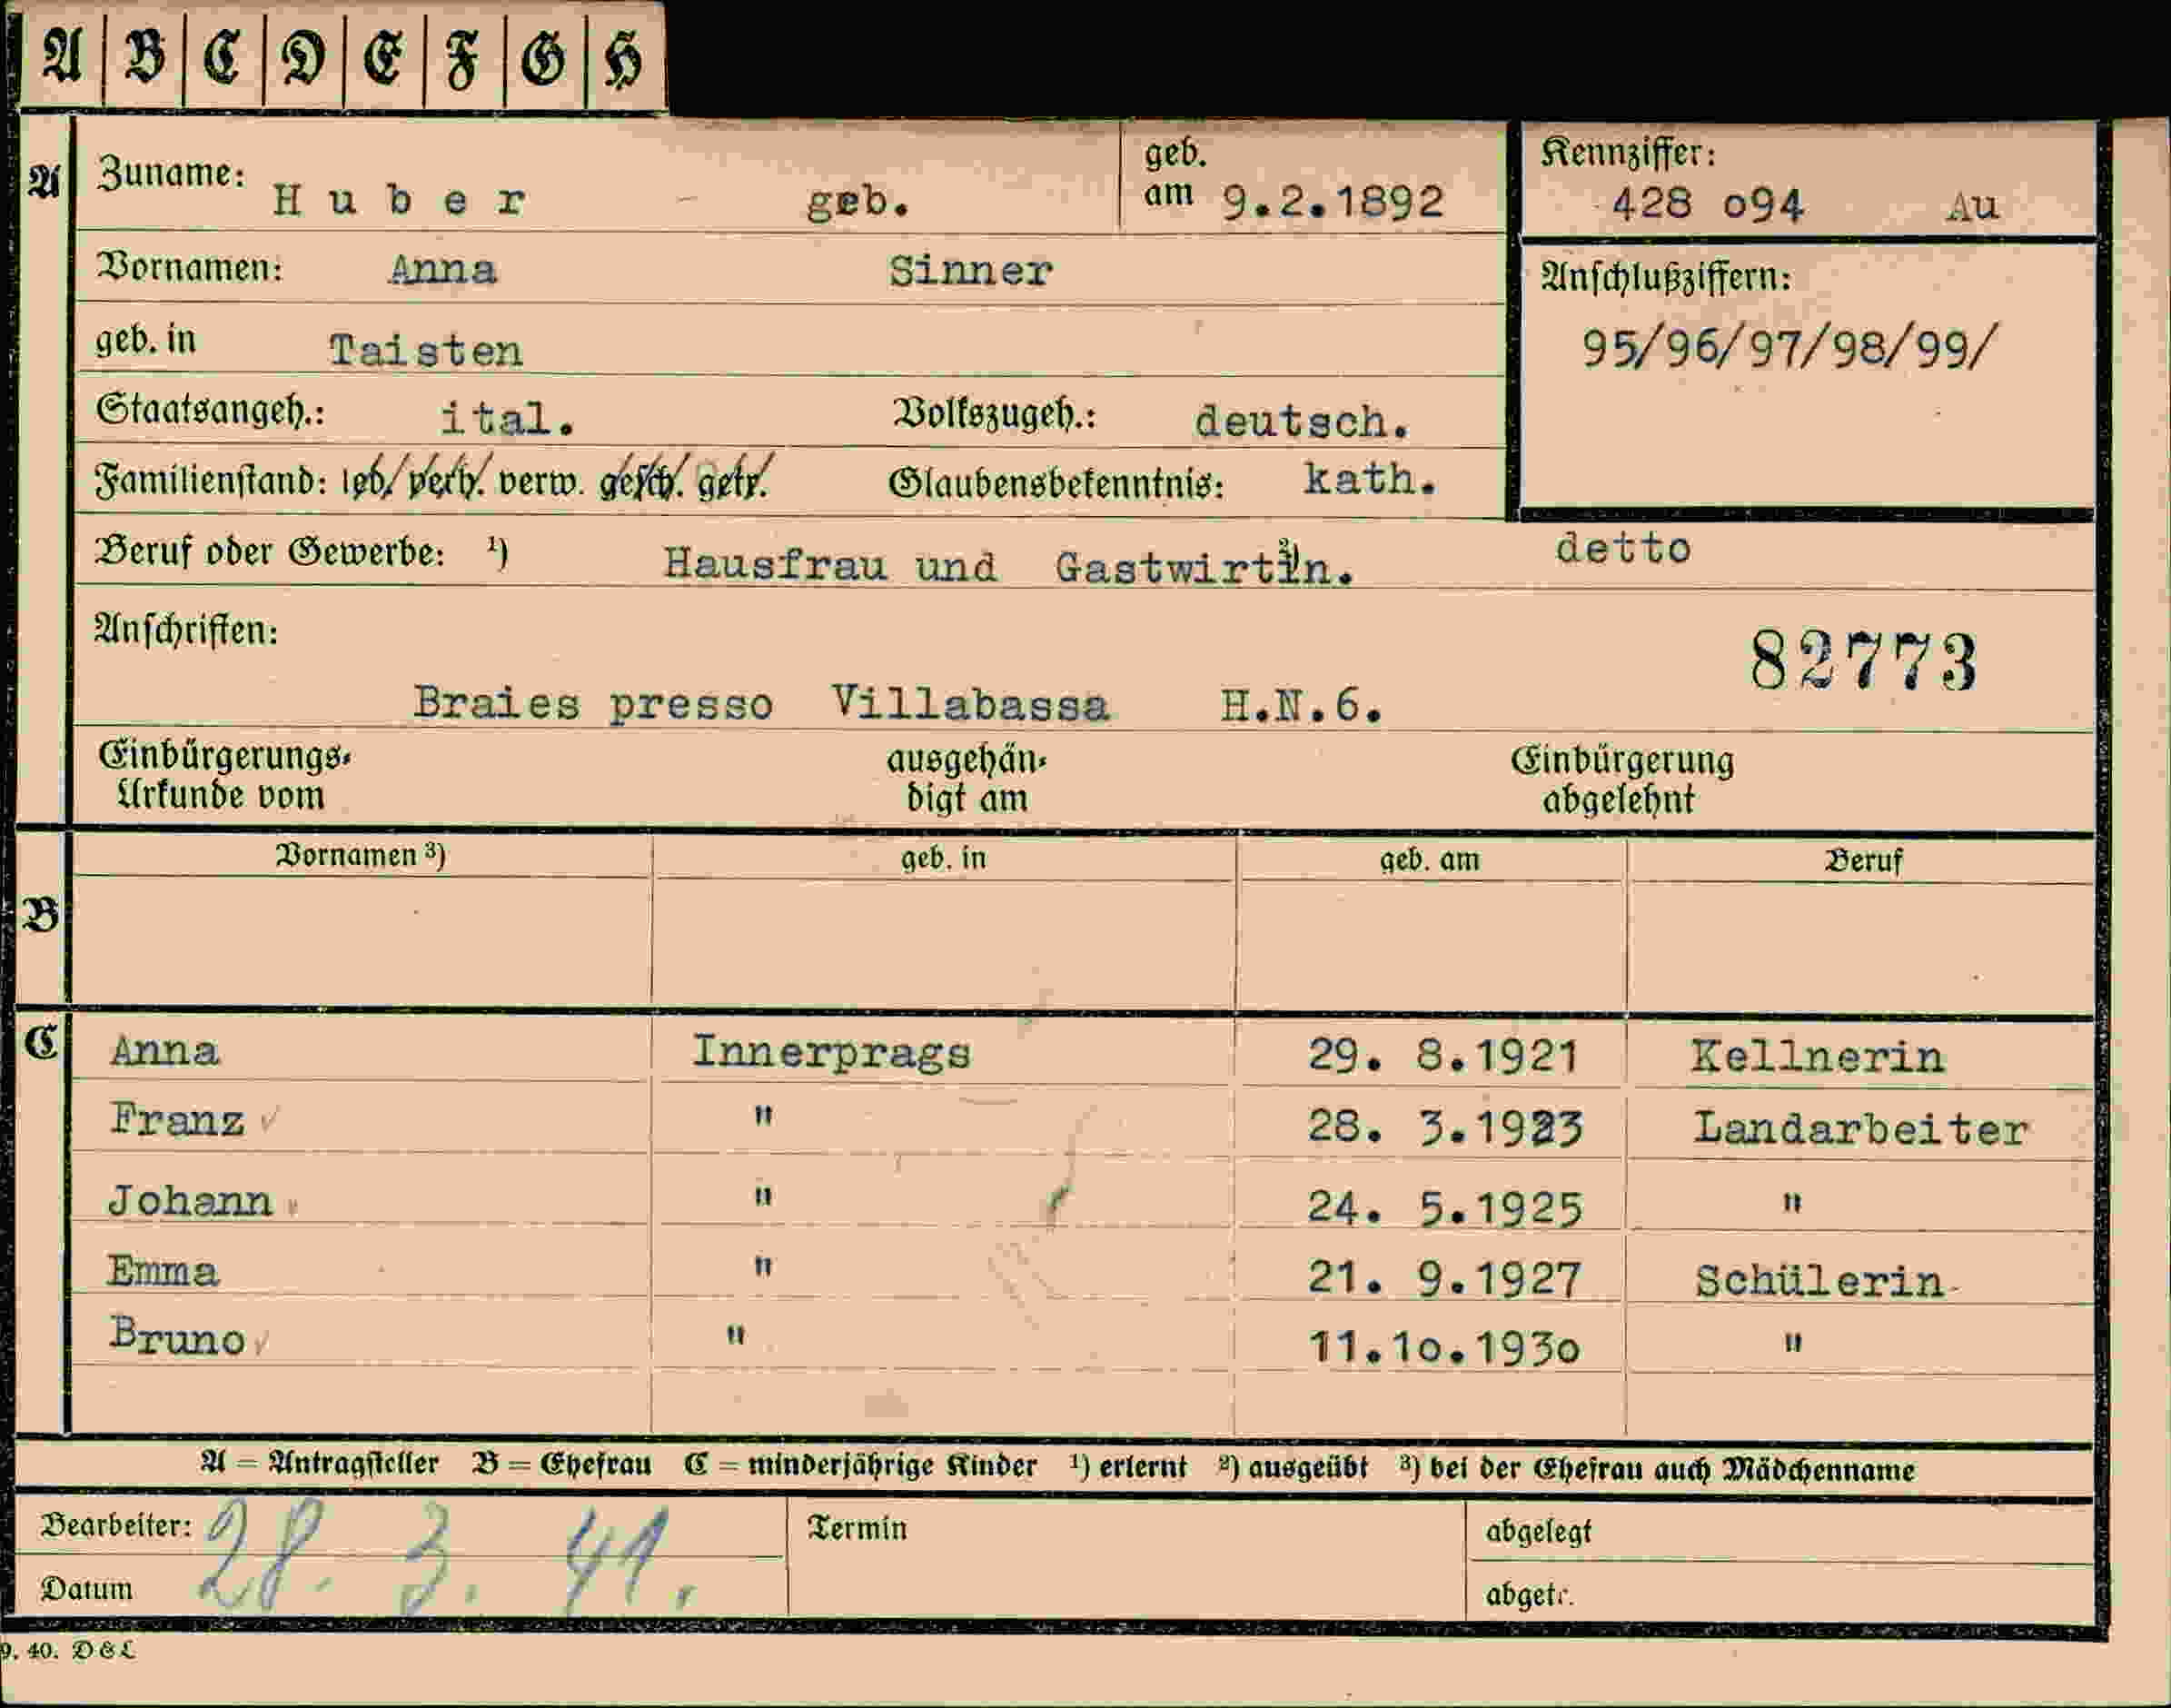 A B C D E F G H
A
Zuname: Huber geb. geb. am 9.2.1892
Kennziffer: 428 o94 Au
Vornamen: Anna Sinner
Anschlußziffern:
95/96/97/98/99/
geb. in Taisten
Staatsangeh.: ital. Volkszugeh.: deutsch.
Familienstand: led. verh. verw. gesch. getr. Glaubensbekenntnis: kath.
Beruf oder Gewerbe: ¹) Hausfrau und Gastwirtin. ²) detto
Anschriften:
82773
Braies presso Villabassa H.N.6.
Einbürgerungs-Urkunde vom ausgehändigt am Einbürgerung abgelehnt
Vornamen ³) geb. in geb. am Beruf
B
C
Anna Innerprags 29. 8.1921 Kellnerin
Franz " 28. 3.1923 Landarbeiter
Johann " 24. 5.1925 "
Emma " 21. 9.1927 Schülerin
Bruno " 11.1o.193o "
A = Antragsteller B = Ehefrau C = minderjährige Kinder ¹) erlernt ²) ausgeübt ³) bei der Ehefrau auch Mädchenname
Bearbeiter: 28. 3. 41. Termin abgelegt
Datum abgetr.
9. 40. D&L